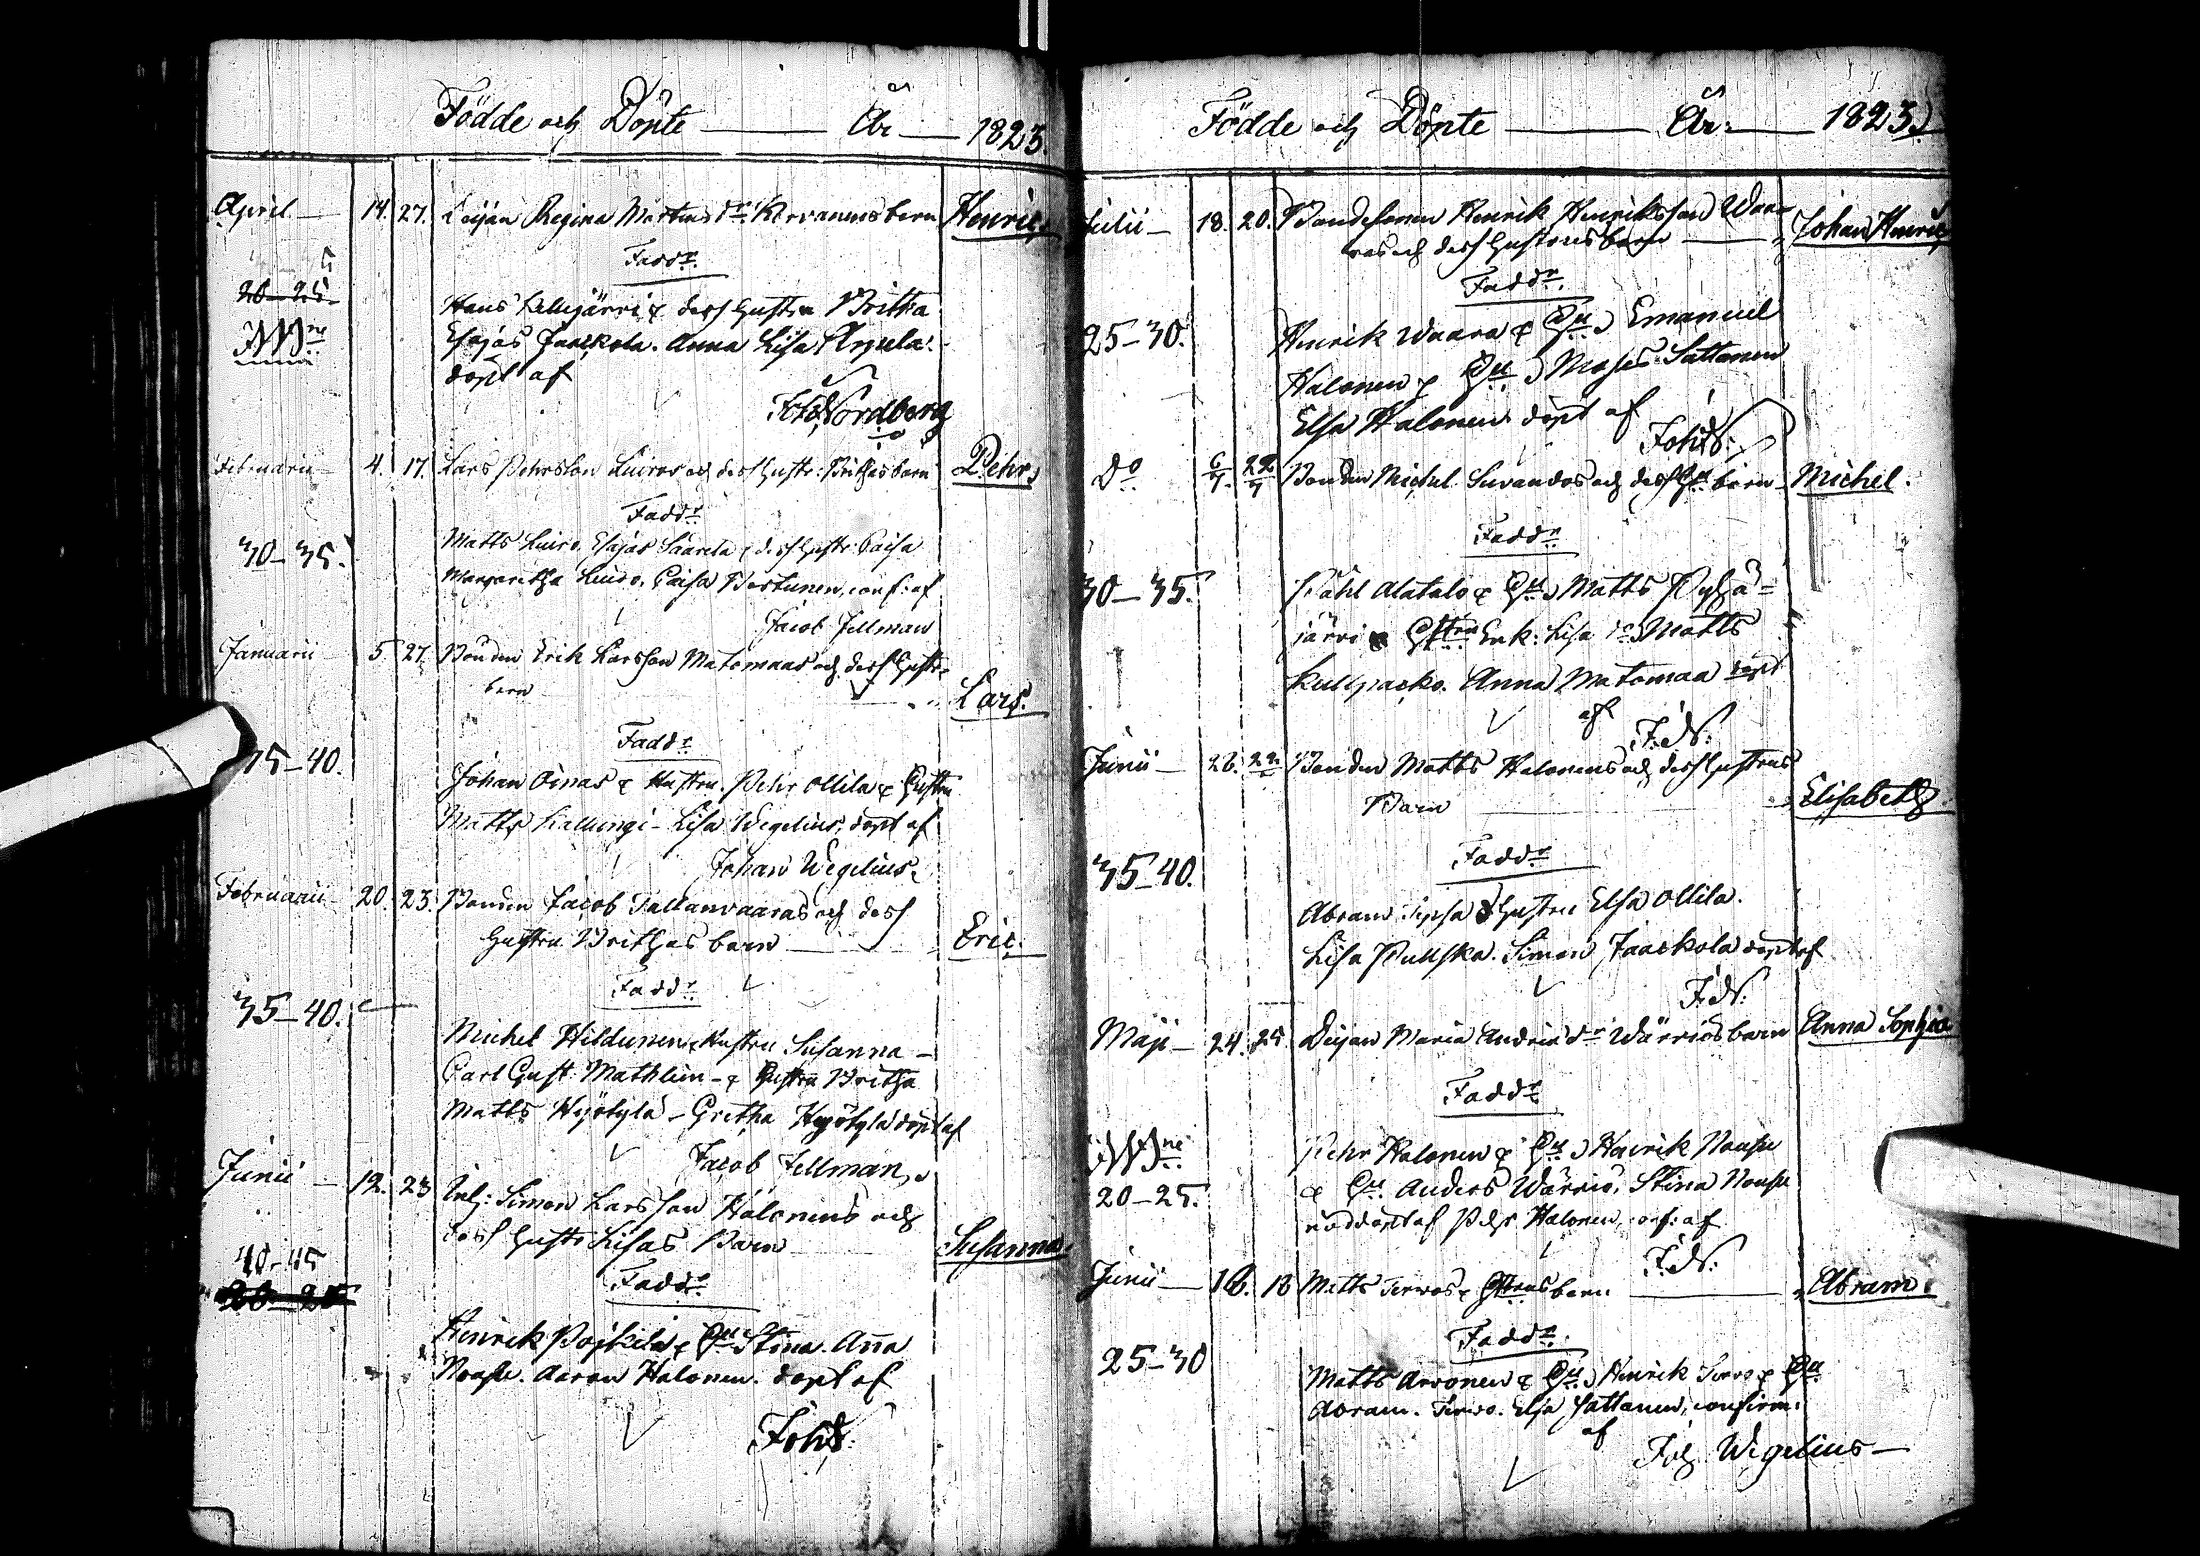 Födde och Döpte — År — 1823.
April — 14. 27. Pigan Regina Mårtens dr Karvanens barn Henric,
Faddr
20–25
Hans Kellujärvi & dess hustru Britha
Esajas Jaaskola. Anna Lisa
döpt af
Joh. Nordberg
Februarii — 4. 17. Lars Pehrsson Luiros och dess hustr: Brithas barn Pehr,
Faddr
30–35. Matts Luiro, Esajas Saarela & dess hustr: Caisa
Margaretha Luiro, Caisa conf: af
Jacob Fellman
Januarii 5. 27. Bonden Erik Larsson Matomaas och dess hustr:
barn — Lars.
Faddr
35–40. Johan Oinas & Hustru. Pehr Ollila & Hustru
Matts Kallungi – Lisa Wegelius, döpt af
Johan Wegelius.
Februarii — 20. 23. Bonden Jacob Tallavaaras och dess
hustru Brithas barn — Eric.
Faddr
35–40.
Michel Hildunen & Hustru Susanna –
Carl Gust: Mathlin – & Hustru Britha
Matts Hyötylä – Gretha Hyötylä döpt af
Jacob Fellman,
Junii — 12. 23 Inh: Simon Larsson Halonens och
dess hustr: Lisas Barn — Susanna.
40–45
Faddr
Henrik Postila & Hu Stina. Anna
Nousu. Aaron Halonen. döpt af
Joh. N.
Födde och Döpte — År: — 1823.
Julii — 18. 20. Bondesonen Henrik Henriksson Waa-
ras och dess hustrus barn — Johan Henric
Faddr.
25–30. Henrik Waara & Hu, Emanuel
Halonen & Hu, Moses Sattanen
Elsa Halonen döpt af
Joh. N.
Do 6/7. 22/7 Bonden Michel Suvandos och dess Hu barn — Michel.
Faddr
30–35. Påhl Alatalo & Hu, Matts Pyhä=
järvi & Hstru Enk: Lisa do, Matts
Kullpacko. Anna Matomaa döpt
af J. N.
Junii — 26. 22. Bonden Matts Halonens och dess hustrus
Barn — Elisabeth.
Faddr
35–40.
Abram Sipsa & hustru Elsa Ollila.
Lisa Pulska. Simon Jaaskola döpt af
J. N.
Maji — 24. 25 Pigan Maria Anders dr Wärriös barn Anna Sophia
Faddr
20–25. Pehr Halonen & Hu, Henrik Nousu
& Hu. Anders Wärriö, Stina Nousu
nöddöpt af Pehr Halonen, conf: af
J. N.
Junii — 16. 18 Matts Torvos & Hstrus barn — Abram.
Faddr.
25–30
Matts Arvonen & Hu, Henrik Torvo & Hu
Abram. Torvo. Elsa Sattanen, confirm:
af
Joh Wegelius —